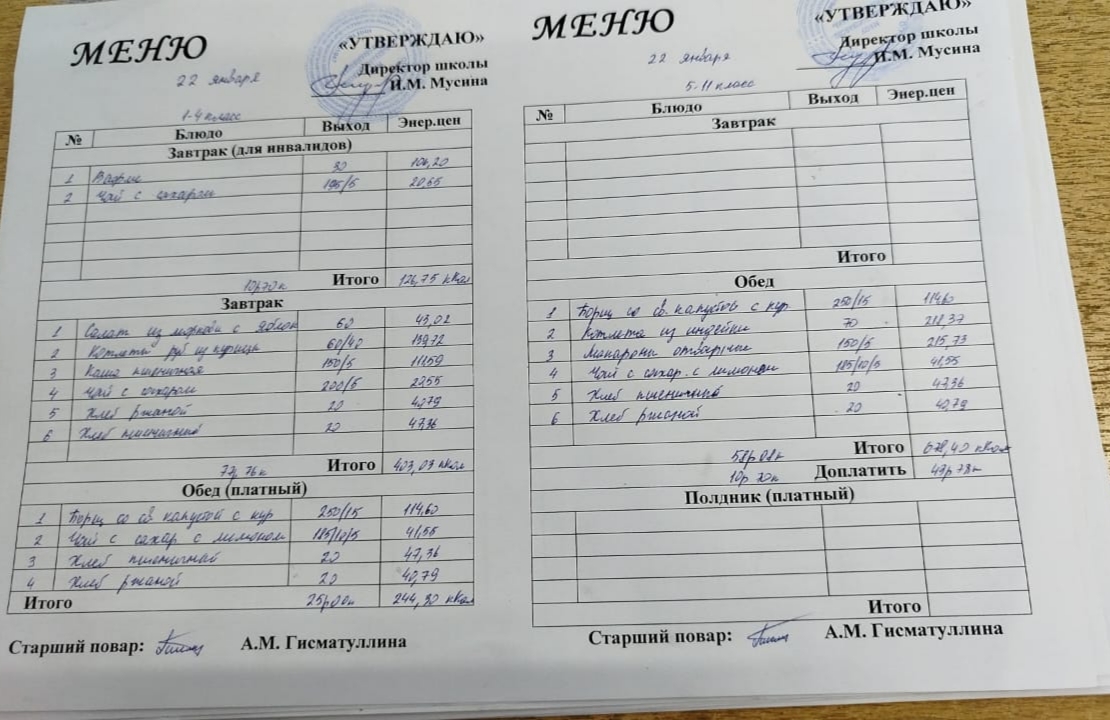 МЕНЮ
«УТВЕРЖДАЮ»
Директор школы
И.М. Мусина
22 января
1-4 класс
№ Блюдо Выход Энер.цен
Завтрак (для инвалидов)
1 Вафли 30 106,20
2 Чай с сахаром 195/5 20,55
10р70к Итого 126,75 кКал
Завтрак
1 Салат из моркови с яблок 60 43,02
2 Котлета руб из курицы 60/40 139,72
3 Каша пшеничная 150/5 111,59
4 Чай с сахаром 200/5
5 Хлеб ржаной 20 40,79
6 Хлеб пшеничный 20 47,36
77р 76к Итого 403,03 кКал
Обед (платный)
1 Борщ со св капустой с кур 250/15 114,60
2 Чай с сахар с лимоном 185/10/5 41,55
3 Хлеб пшеничный 20 47,36
4 Хлеб ржаной 20 40,79
Итого 25р00к 244,30 кКал
Старший повар: А.М. Гисматуллина
МЕНЮ
«УТВЕРЖДАЮ»
Директор школы
И.М. Мусина
22 января
5-11 класс
№ Блюдо Выход Энер.цен
Завтрак
Итого
Обед
1 Борщ со св. капустой с кур 250/15 114,60
2 Котлета из индейки 70 218,37
3 Макароны отварные 150/5 215,73
4 Чай с сахар. с лимоном 185/10/5 41,55
5 Хлеб пшеничный 20 47,36
6 Хлеб ржаной 20 40,79
58р 08к Итого 678,40 кКал
10р 70к Доплатить 49р 78к
Полдник (платный)
Итого
Старший повар: А.М. Гисматуллина